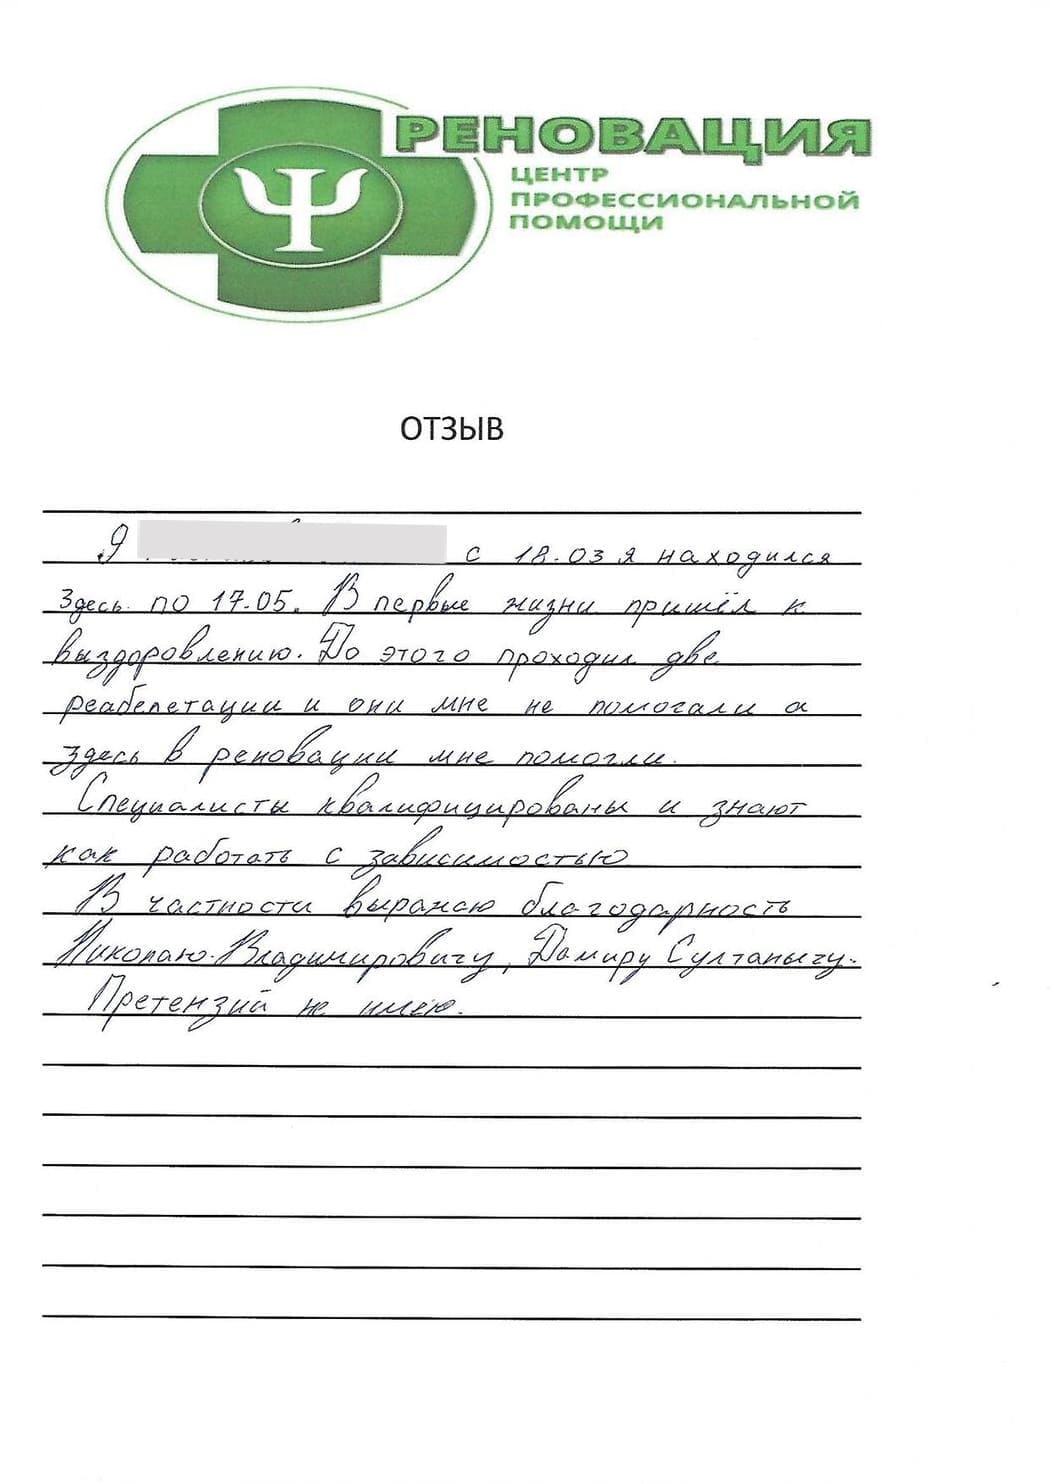 РЕНОВАЦИЯ
ЦЕНТР
ПРОФЕССИОНАЛЬНОЙ
ПОМОЩИ
ОТЗЫВ
Я с 18.03 я находился
здесь по 17.05. В первые жизни пришёл к
выздоровлению. До этого проходил две
реабелетации и они мне не помогали а
здесь в реновации мне помогли.
Специалисты квалифицированы и знают
как работать с зависимостью
В частности выражаю благодарность
Николаю Владимировичу, Дамиру Султанычу.
Претензий не имею.